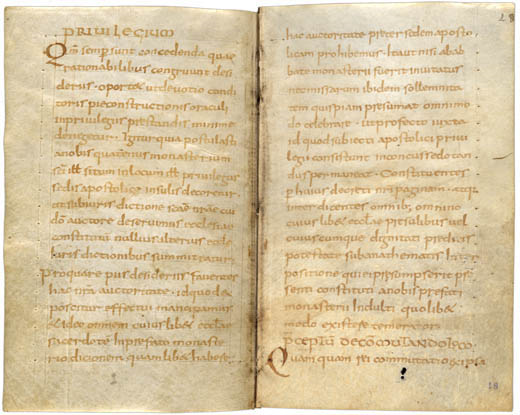 PRIVILEGIUM
Qm̄ semper sunt concedenda quae
rationabilibus congruunt desi
deriis · oportet ut devotio condi
toris pie constructionis oraculi
in privilegiis prestandis minime
denegetur · Igitur quia postulasti
a nobis quatenus monasterium
sc̄i ill situm in locum ill privilegiis
sedis apostolice insulis decoretur
ut sub iuris dictione scae nrae cui
dō auctore deservimus ecclesiae
constitutū nullius alterius eccle
iuris dictionibus summittatur
Pro qua re piis desideriis faventes
hac nrā auctoritate · id quod ex
poscitur effectui mancipamus
et ideo omnem cuius libet ecclae
sacerdote in prefato monaste
rio dicionem quam libet habere
28
hac auctoritate preter sedem aposto
licam prohibemus · Ita ut nisi ab ab
bate monasterii fuerit invitatus
nec missarum ibidem sollemnita
tem quispiam presumat omnimo
do celebrare · ut profecto iuxta
id quod subiecti apostolici privi
legii consistunt inconcusse dotan
dus permaneat · Constituentes
per huius decreti nri paginam · atque
interdicentes omnib; omnino
cuius libet ecclae presulibus vel
cuiuscumque dignitatis preditis
potestate sub anathematis Inter
positione qui ei presumpserit pre
senti constituti a nobis prefati
monasterii Indulti quolibet
modo existere temerator
PCEPTŪ DE CŌMUTANDO LOCO ·
Quamquam rei commutatio et ipsa
28